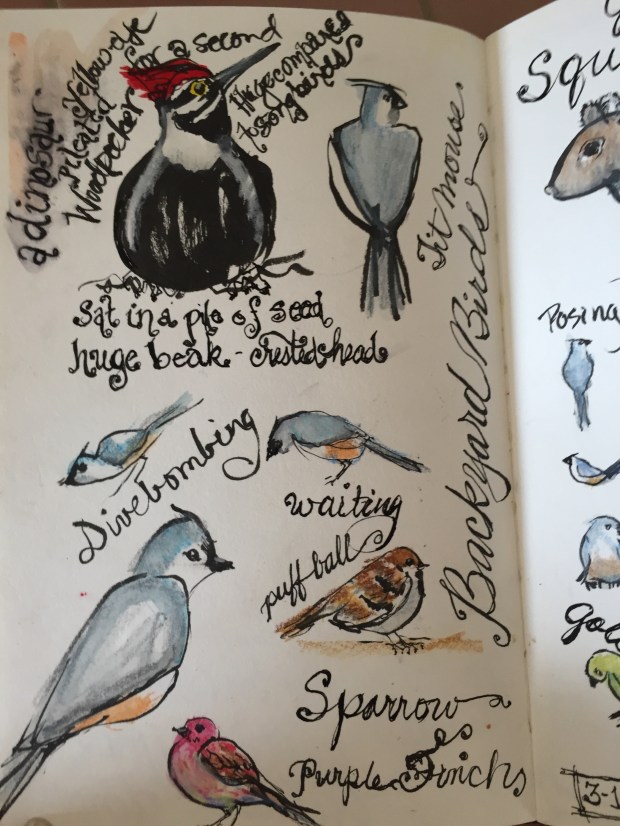 a dinosaur
for a second
Yellow eye
Pileated
Woodpecker
Huge compared
to songbirds
Sat in a pile of seed
huge beak - crested head
Tit mouse
Backyard Birds
Divebombing
waiting
puff ball
Sparrow
Purple Finchs
Squ
Posing
3-1